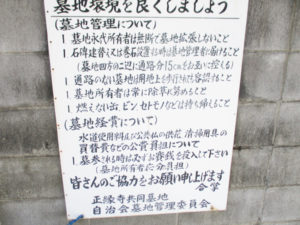 墓地環境を良くしましょう
(墓地管理について)
1 墓地永代所有者は無断で墓地拡張しないこと
1 石碑建替え又は巻石設置する時は墓地管理者に届けること
(墓地四方の二辺に通路分15cmをお互いに控える)
1 通路のない墓地は
1 墓地所有者は常に除草に努めること
1 燃えないゴミ ビン セトモノなどは持ち帰ること
(墓地経費について)
水道使用料及び公共仏の供花 清掃用具の
買替費などの公費負担について
1 墓参される時は必ずお賽銭を投入して下さい
(墓地所有者応分負担)
皆さんのご協力をお願い申し上げます
合掌
正縁寺共同墓地
自治会墓地管理委員会